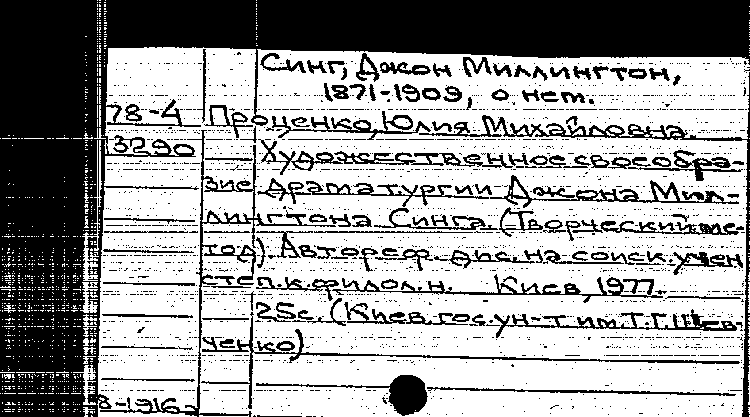 Синг, Джон Миллингтон,
1871-1909, о нем.
78-4 Проценко, Юлия Михайловна.
13290 Художественное своеобра-
зие драматургии Джона Мил-
лингтона Синга. (Творческий ме-
тод). Автореф. дис. на соиск. учен
степ. к. филол. н. Киев, 1977.
25с. (Киев. гос. ун-т им. Т.Г. Шев-
ченко)
8-1916а